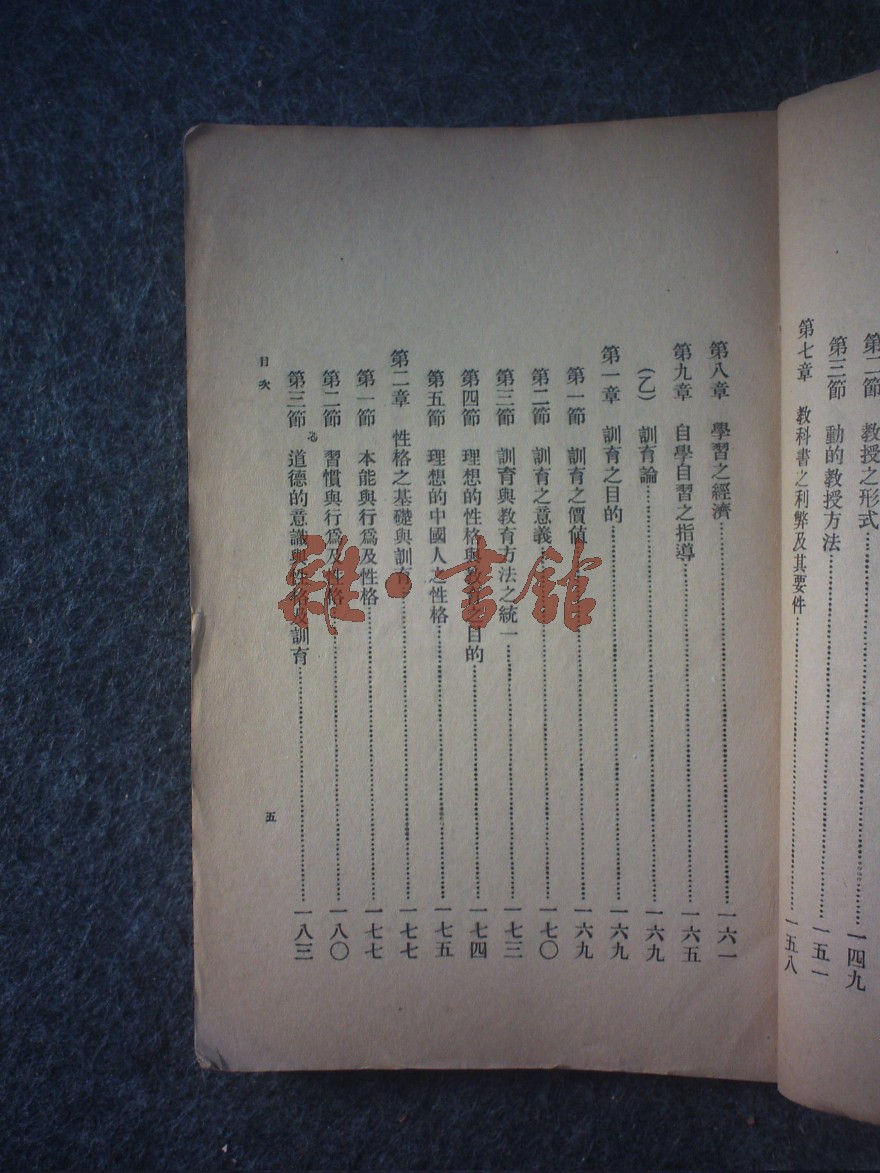 第二節　教授之形式……一四九
第三節　動的教授方法……一五一
第七章　教科書之利弊及其要件……一五八
第八章　學習之經濟……一六一
第九章　自學自習之指導……一六五
(乙)　訓育論……一六九
第一章　訓育之目的……一六九
第一節　訓育之價値……一六九
第二節　訓育之意義……一七〇
第三節　訓育與教育方法之統一……一七三
第四節　理想的性格與教育之目的……一七四
第五節　理想的中國人之性格……一七五
第二章　性格之基礎與訓育……一七七
第一節　本能與行爲及性格……一七七
第二節　習慣與行爲及性格……一八〇
第三節　道德的意識與性格及訓育……一八三
目次
五
雜·書館